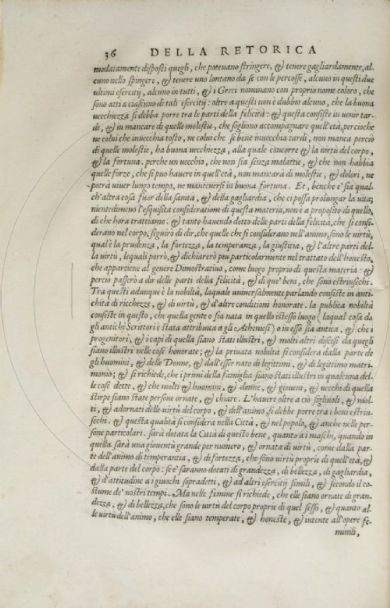 36 DELLA RETORICA
modatamente disposti quegli, che potevano stringere, & tenere gagliardamente, al,
cuno nello spingere, & tenere uno lontano da se con le percosse, alcuno in questi due
ultimi esercitij, alcuno in tutti, & i Greci nominano con proprio nome coloro, che
sono atti a ciascuno di tali esercitij: oltre a questi non è dubbio alcuno, che la buona
vecchiezza si debba porre tra le parti della felicità: & questa consiste in venir tar-
di, & in mancare di quelle molestie, che sogliono accompagnare quell'età, percioche
ne colui che invecchia tosto, ne colui che se bene invecchia tardi, non manca perciò
di quelle molestie, ha buona vecchiezza, alla quale concorre & la virtù del corpo,
& la fortuna. perche un vecchio, che non sia senza malattie, & che non habbia
quelle forze, che si può havere in quell'età, non mancarà di molestie, & dolori, ne
potrà viver lungo tempo, ne mantenersi in buona fortuna. Et, benche e' sia qual-
ch'altra cosa fuor della sanità, & della gagliardia, che ci possa prolungar la vita;
nientedimeno l'esquisita consideratione di questa materia, non è a proposito di quello,
di che hora trattiamo. & tanto havendo detto delle parti della felicità, che si consi-
derano nel corpo, seguirò di dir, che quelle che si considerano nell'animo, sono le virtù,
qual'è la prudenza, la fortezza, la temperanza, la giustitia, & l'altre parti del-
la virtù, lequali però, & dichiarerò più particolarmente nel trattato dell'honesto,
che appartiene al genere Dimostrativo, come luogo proprio di questa materia: &
perciò passerò a dir delle parti della felicità, & di que' beni, che sono estrinsechi.
Tra questi adunque è la nobiltà, laquale universalmente parlando consiste in anti-
chità di ricchezze, & di virtù, & d'altre conditioni honorate. la publica nobiltà
consiste in questo, che quella gente o sia nata in quello istesso luogo (laqual cosa da
gli antichi Scrittori è stata attribuita a gli Atheniesi) o in esso sia antica, & che i
progenitori, & i capi di quella siano stati illustri, & molti altri discesi da quegli
siano illustri nelle cose honorate; & la privata nobiltà si considera dalla parte de
gli huomini, & delle Donne, & dall'esser nato di legitimi, & di legitimo matri-
monio; & si richiede, che i primi della famiglia siano stati illustri in qualcuna del-
le cose dette, & che molti & huomini, & donne, & giovani, & vecchi di quella
stirpe siano state persone ornate, & chiare. L'havere oltre a ciò figliuoli, & mol-
ti, & adornati delle virtù del corpo, & dell'animo, si debbe porre tra i beni estrin-
sechi: & questa qualità si considera nella Città, & nel popolo, & anche nelle per-
sone particolari. sarà dotata la Città di questo bene, quanto a i maschi, quando in
quella sarà una gioventù grande per numero, & ornata di virtù, come dalla par-
te dell'animo di temperantia, & di fortezza, che sono virtù proprie di quell'età, &
dalla parte del corpo: se e' saranno dotati di grandezza, di bellezza, di gagliardia,
& d'attitudine a i giuochi sopradetti, & ad altri esercitij simili, & secondo il co-
stume de' nostri tempi. Ma nelle femine si richiede, che elle siano ornate di gran-
dezza, & di bellezza, che sono le virtù del corpo proprie di quel sesso, & quanto al-
le virtù dell'animo, che elle siano temperate, & honeste, & intente all'opere fe-
minili,